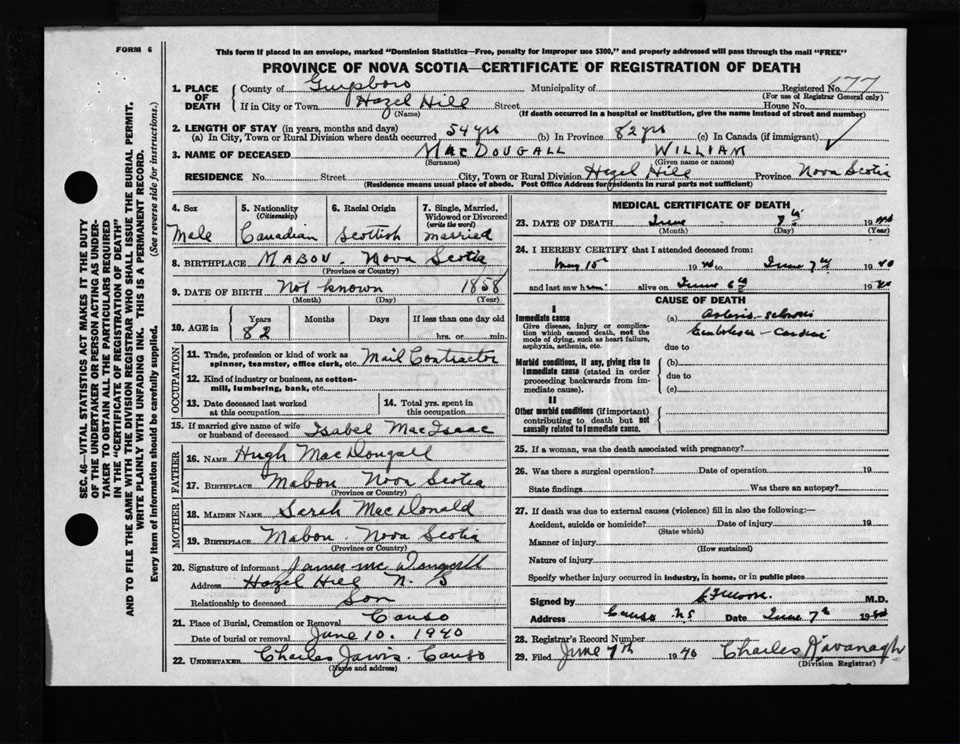 FORM 6
This form if placed in an envelope, marked "Dominion Statistics—Free, penalty for improper use $300," and properly addressed will pass through the mail "FREE"
PROVINCE OF NOVA SCOTIA—CERTIFICATE OF REGISTRATION OF DEATH
1. PLACE OF DEATH County of Guysboro Municipality of Registered No. 677
(For use of Registrar General only)
If in City or Town Hazel Hill Street House No.
(Name) (If death occurred in a hospital or institution, give the name instead of street and number)
2. LENGTH OF STAY (in years, months and days)
(a) In City, Town or Rural Division where death occurred 54 yrs (b) In Province 82 yrs (c) In Canada (if immigrant)
3. NAME OF DECEASED MacDOUGALL WILLIAM
(Surname) (Given name or names)
RESIDENCE No. Street City, Town or Rural Division Hazel Hill Province Nova Scotia
(Residence means usual place of abode. Post Office Address for residents in rural parts not sufficient)
4. Sex 5. Nationality (Citizenship) 6. Racial Origin 7. Single, Married, Widowed or Divorced (write the word)
Male Canadian Scottish married
8. BIRTHPLACE MABOU. Nova Scotia
(Province or Country)
9. DATE OF BIRTH Not known 1858
(Month) (Day) (Year)
10. AGE in Years Months Days If less than one day old
82 hrs. or min.
OCCUPATION
11. Trade, profession or kind of work as spinner, teamster, office clerk, etc. Mail Contractor
12. Kind of industry or business, as cotton-mill, lumbering, bank, etc.
13. Date deceased last worked at this occupation 14. Total yrs. spent in this occupation
15. If married give name of wife or husband of deceased Isabel MacIsaac
FATHER
16. NAME Hugh MacDougall
17. BIRTHPLACE Mabou Nova Scotia
(Province or Country)
MOTHER
18. MAIDEN NAME Sarah MacDonald
19. BIRTHPLACE Mabou. Nova Scotia
(Province or Country)
20. Signature of informant James McDougall
Address Hazel Hill N. S
Relationship to deceased Son
21. Place of Burial, Cremation or Removal Canso
Date of burial or removal June 10. 1940
22. UNDERTAKER Charles Jarvis. Canso
(Name and address)
MEDICAL CERTIFICATE OF DEATH
23. DATE OF DEATH June 19
(Month) (Day) (Year)
24. I HEREBY CERTIFY that I attended deceased from:
May 19 to June 7th 1940
and last saw h alive on June 6th 19
CAUSE OF DEATH
I
Immediate cause
Give disease, injury or complication which caused death, not the mode of dying, such as heart failure, asphyxia, asthenia, etc.
(a) Embolism - Cardiac
due to
Morbid conditions, if any, giving rise to immediate cause (stated in order proceeding backwards from immediate cause).
(b)
due to
(c)
II
Other morbid conditions (if important) contributing to death but not causally related to immediate cause.
25. If a woman, was the death associated with pregnancy?
26. Was there a surgical operation? Date of operation 19
State findings Was there an autopsy?
27. If death was due to external causes (violence) fill in also the following:—
Accident, suicide or homicide? Date of injury 19
(State which)
Manner of injury
(How sustained)
Nature of injury
Specify whether injury occurred in industry, in home, or in public place
Signed by M.D.
Address Canso NS Date June 7th 1940
28. Registrar's Record Number
29. Filed June 7th 1940 Charles Kavanagh
(Division Registrar)
SEC. 46—VITAL STATISTICS ACT MAKES IT THE DUTY
OF THE UNDERTAKER OR PERSON ACTING AS UNDER-
TAKER TO OBTAIN ALL THE PARTICULARS REQUIRED
IN THE "CERTIFICATE OF REGISTRATION OF DEATH"
AND TO FILE THE SAME WITH THE DIVISION REGISTRAR WHO SHALL ISSUE THE BURIAL PERMIT.
WRITE PLAINLY WITH UNFADING INK. THIS IS A PERMANENT RECORD.
Every item of information should be carefully supplied. (See reverse side for instructions.)